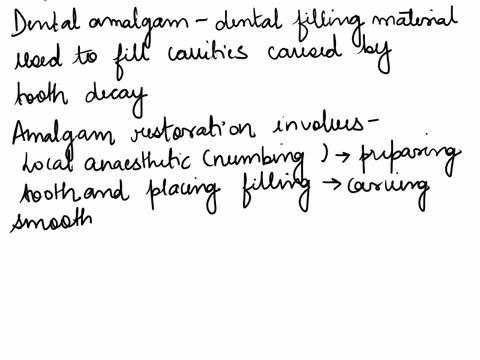 Dental amalgam - dental filling material
used to fill cavities caused by
tooth decay
Amalgam restoration involves -
Local anaesthetic (numbing ) → preparing
tooth and placing filling → carving
smooth